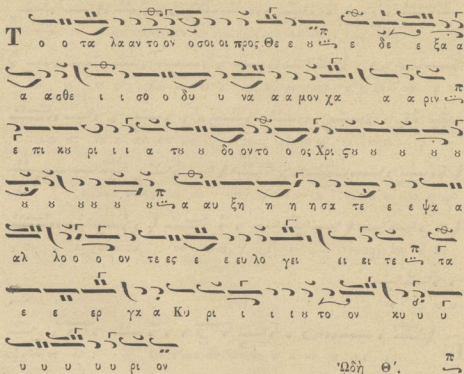 Τ ο ο τα λα αν το ον ο σοι οι προς Θε ε ȣ ε δε ε ξα α
α ασθε ι ι σο ο δυ υ να α α μον χα α α ριν
ε πι κυ ρι ι ι α τȣ ȣ δο ον το ο ος Χρι ςȣ ȣ ȣ ȣ
ȣ ȣ ȣ ȣ ȣ ȣ α αυ ξη η η η σα τε ε ε ψα α
αλ λο ο ο ον τε ες ε ε ευ λο γει ει ει τε τα
ε ε ερ γα α Κυ ρι ι ι ι ȣ το ον κυ υ υ
υ υ υ υ υ ρι ον Ὠδὴ Θʹ.